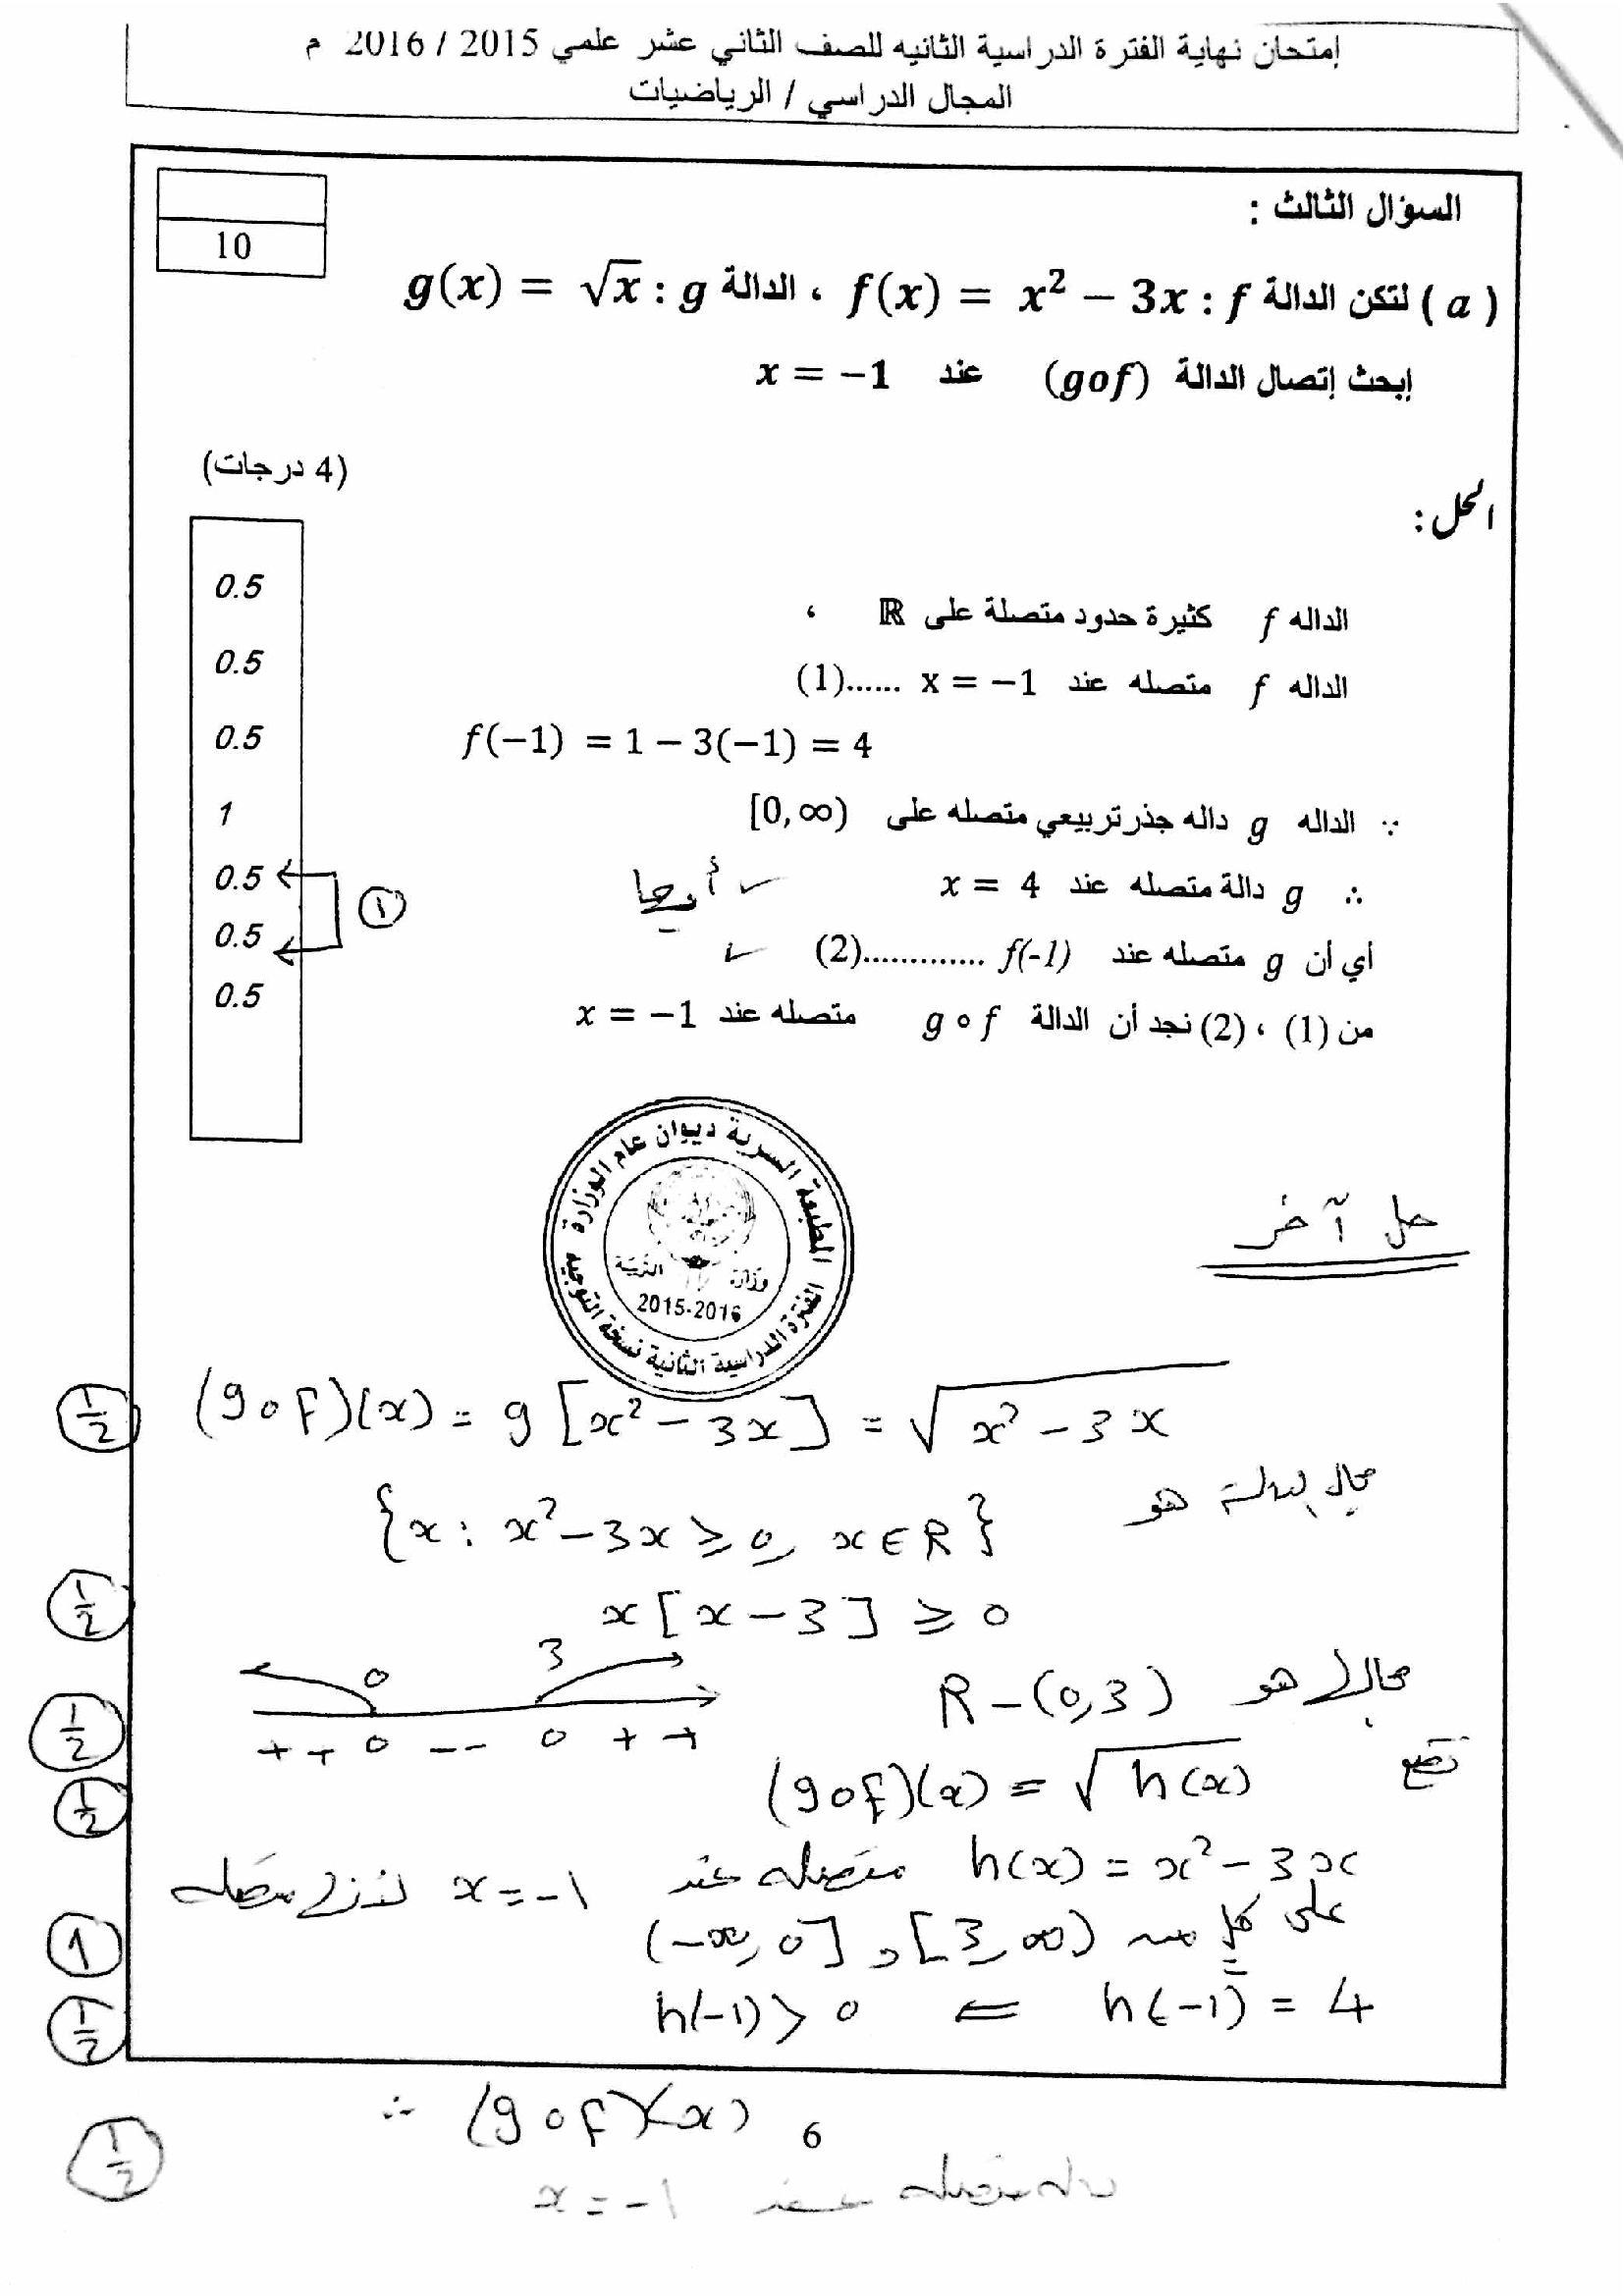 إمتحان نهاية الفترة الدراسية الثانيه للصف الثاني عشر علمي 2015 / 2016 م
المجال الدراسي / الرياضيات
10
السؤال الثالث :
( a ) لتكن الدالة f : f(x) = x² − 3x ، الدالة g : g(x) = √x
إبحث إتصال الدالة (gof) عند x = −1
(4 درجات)
الحل :
الداله f كثيرة حدود متصلة على ℝ ،
0.5
الداله f متصله عند x = −1 ......(1)
0.5
f(−1) = 1 − 3(−1) = 4
0.5
∵ الداله g داله جذر تربيعي متصله على [0,∞)
1
∴ g دالة متصله عند x = 4
0.5
أي أن g متصله عند f(-1) .............(2)
0.5
①
من (1) ، (2) نجد أن الدالة g∘f متصله عند x = −1
0.5
المطبعة السرية ديوان عام الوزارة
وزارة التربية
2015-2016
الفترة الدراسية الثانية نسخة التوجيه
حل آخر
(gof)(x) = g[x² − 3x] = √(x² − 3x)
1/2
مجال الدالة هو
{x : x² − 3x ≥ 0, x ∈ R}
x[x − 3] ≥ 0
1/2
0 3
مجالها هو R − (0,3)
+ + 0 -- 0 + +
1/2
نضع (gof)(x) = √h(x)
1/2
h(x) = x² − 3x متصله عند x = −1 لأنها متصله
على كل من (−∞, 0] , [3, ∞)
1
h(−1) = 4 ⇐ h(−1) > 0
1/2
∴ (gof)(x)
6
متصله عند x = −1
1/2